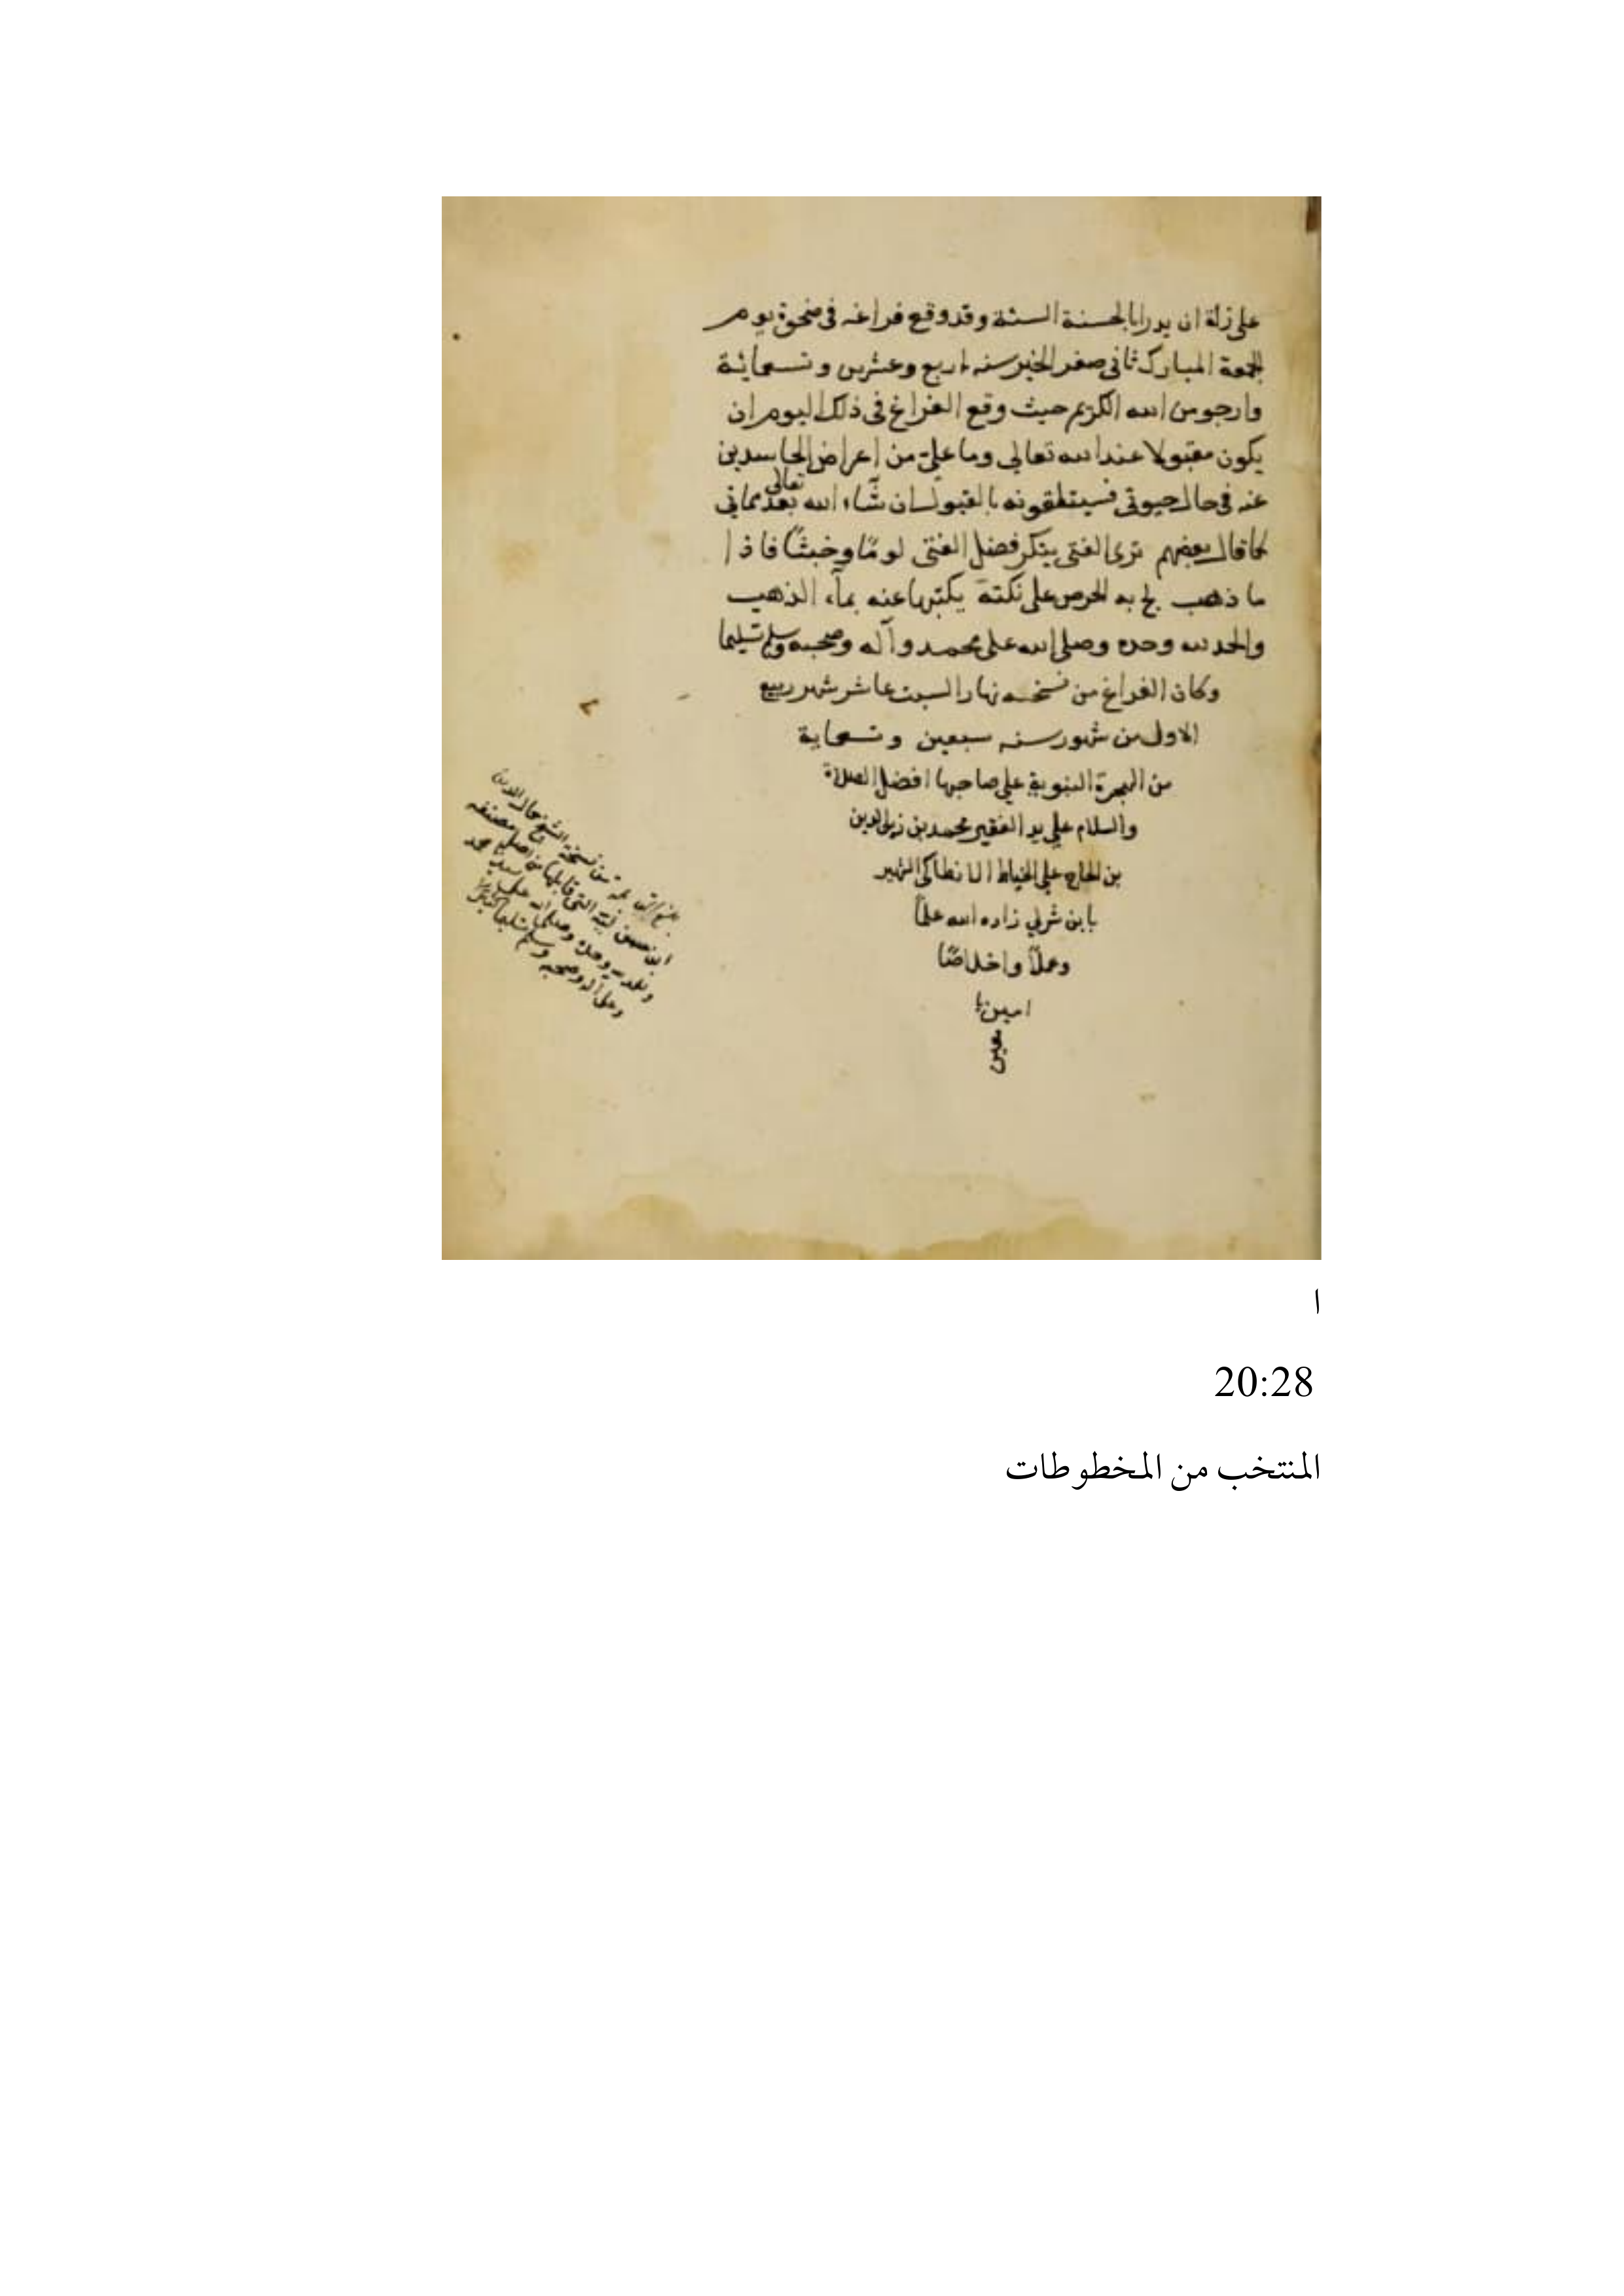 على زلة ان يدرا بالحسنة السئة وقد وقع فراغه فى ضحوة يوم
الجمعة المبارك ثانى صفر الخير سنه اربع وعشرين وتسعمائة
وارجو من الله الكريم حيث وقع الفراغ فى ذلك اليوم ان
يكون مقبولا عند الله تعالى وما علىّ من إعراض الحاسدين
عنه فى حال حيوتى فسيتلقونه بالقبول ان شآء الله تعالى بعد مماتى
كما قال بعضهم ترى الفتى ينكر فضل الفتى لومًا وخبثًا فاذا
ما ذهب لج به الحرص على نكتة يكتبها عنه بمآء الذهب
والحمد لله وحده وصلى الله على محمد وآله وصحبه وسلم تسليما
وكان الفراغ من نسخه نهار السبت عاشر شهر ربيع
الاول من شهور سنه سبعين وتسعماية
من الهجرة النبوية على صاحبها افضل الصلاة
والسلام على يد الفقير محمد بن زين الدين
بن الحاج على الخياط الانطاكى الشهير
بابن شربي زاده الله علمًا
وعملًا واخلاصًا
امين يا
معين
من نسخة الشيخ جمال الدين
التى قابلها من اصل مصنفه
والحمد لله وحده وصلى الله على سيدنا محمد
وعلى آله وصحبه وسلم تسليما كثيرا
ا
20:28
المنتخب من المخطوطات